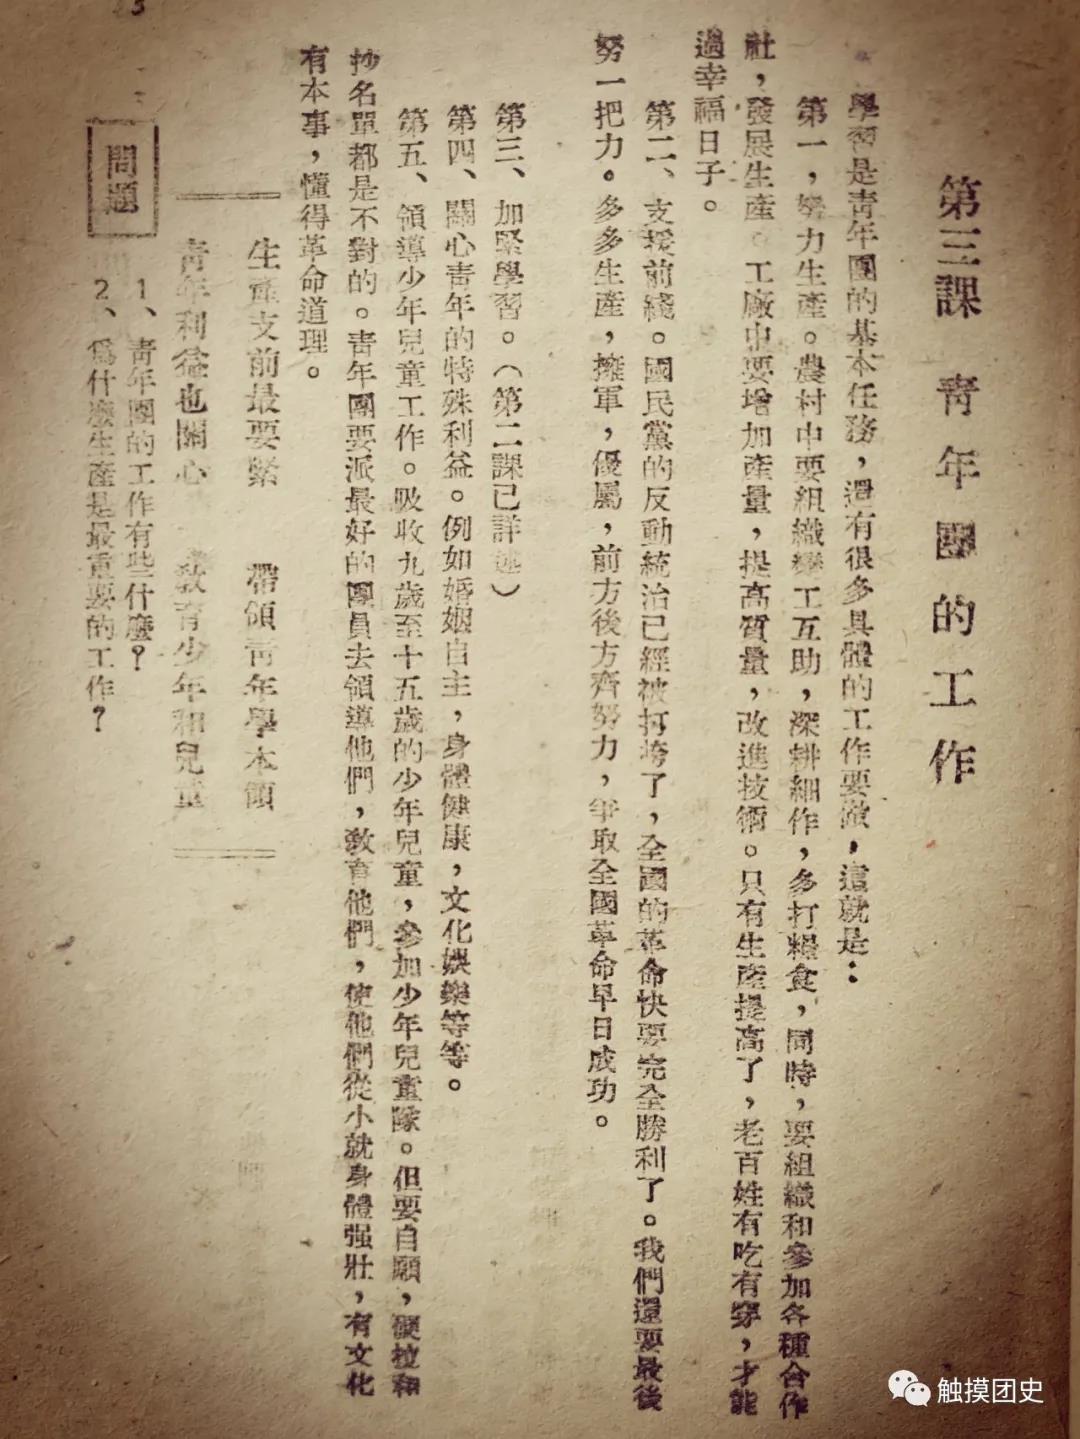 第三課　青年團的工作
學習是青年團的基本任務，還有很多具體的工作要做，這就是：
第一，努力生產。農村中要組織變工互助，深耕細作，多打糧食，同時，要組織和參加各種合作
社，發展生產。工廠中要增加產量，提高質量，改進技術。只有生產提高了，老百姓有吃有穿，才能
過幸福日子。
第二、支援前綫。國民黨的反動統治已經被打垮了，全國的革命快要完全勝利了。我們還要最後
努一把力。多多生產，擁軍，優屬，前方後方齊努力，爭取全國革命早日成功。
第三、加緊學習。（第二課已詳述）
第四、關心青年的特殊利益。例如婚姻自主，身體健康，文化娛樂等等。
第五、領導少年兒童工作。吸收九歲至十五歲的少年兒童，參加少年兒童隊。但要自願，硬拉和
抄名單都是不對的。青年團要派最好的團員去領導他們，敎育他們，使他們從小就身體强壯，有文化
有本事，懂得革命道理。
生產支前最要緊　帶領青年學本領
青年利益也關心　敎育少年和兒童
問題
1、青年團的工作有些什麼？
2、爲什麼生產是最重要的工作？
触摸团史